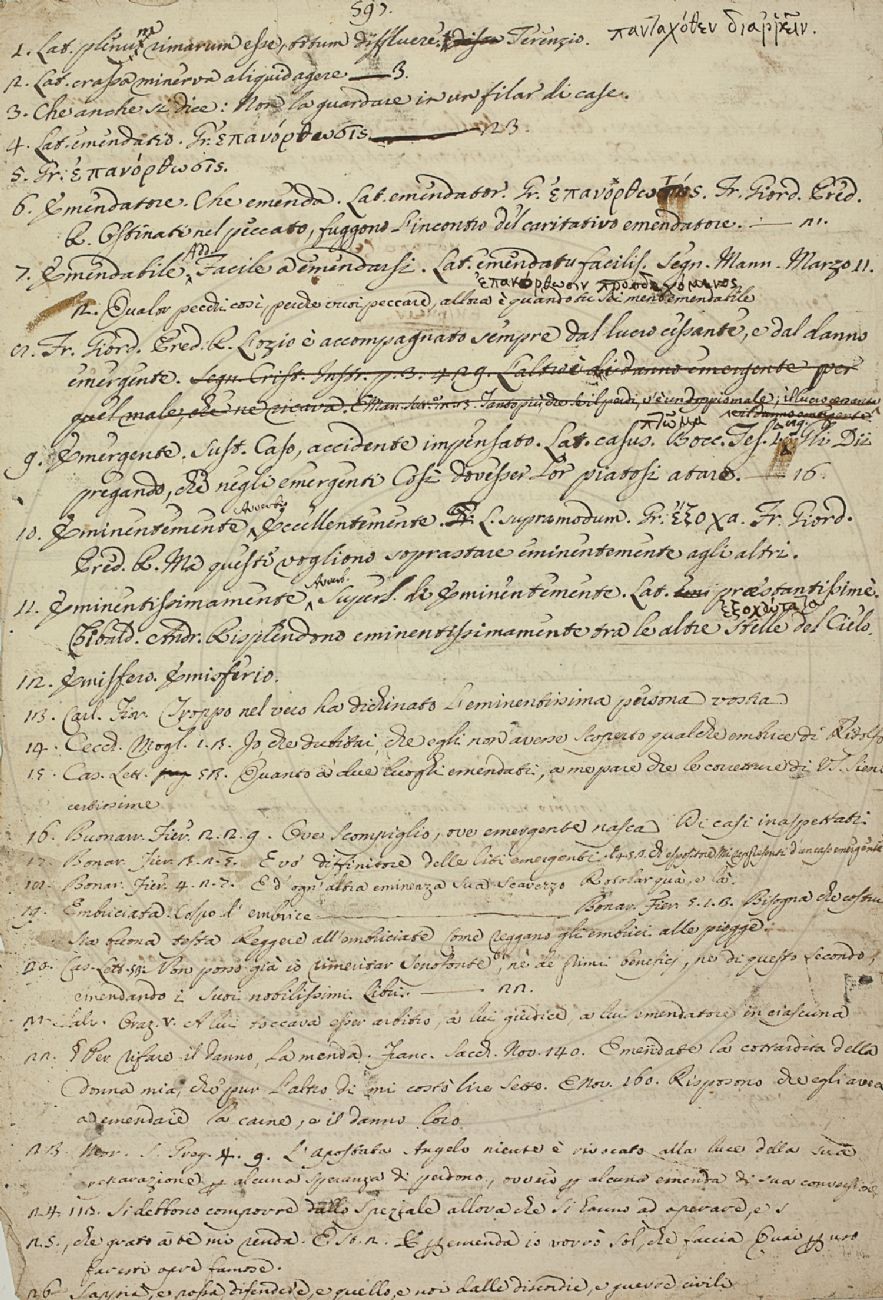 597.
1. Lat. plenum rimarum esse, totum diffluere. Terenzio. πανταχόθεν διαῤῥεῖν.
2. Lat. crassa minerva aliquid agere — 3.
3. Che anche si dice: Non la guardare in un filar di case.
4. Lat. emendatio. Gr. ἐπανόρθωσις. — 23.
5. Gr. ἐπανόρθωσις.
6. Emendatore. Che emenda. Lat. emendator. Gr. ἐπανορθωτής. Fr. Giord. Pred.
R. Ostinati nel peccato, fuggono l'incontro del caritativo emendatore. — 21.
7. Emendabile. Add. Facile a emendarsi. Lat. emendatu facilis. Segn. Mann. Marzo 11.
ἐπανόρθωσιν προσδεχόμενος.
2. Qualor pecchi così, perchè vuoi peccare, allora è quando tu sei men emendabile
8. Fr. Giord. Pred. R. L'ozio è accompagnato sempre dal lucro cessante, e dal danno
emergente. Segn. Crist. Instr. p. 3. 4. 29. L'altro è di danno emergente per
quel male, che ne ricava.
9. Emergente. Sust. Caso, accidente impensato. Lat. casus. πτῶμα Bocc. Tes. Gli Dii
pregando, che negli emergenti Così dovesser lor piatosi atare. — 16.
10. Eminentemente. Avverb. Eccellentemente. L. supramodum. Gr. ἔξοχα. Fr. Giord.
Pred. R. Ma questi vogliono soprastare eminentemente agli altri.
11. Eminentissimamente. Avverb. Superl. di Eminentemente. Lat. præstantissimè.
ἐξοχώτατα
Tibald. Andr. Risplendono eminentissimamente tra le altre Stelle del Cielo.
12. Emisfero. Emisferio.
13. Carl. Fior. Troppo nel vero ha dichinato l'eminentissima persona vostra
14. Cecch. Mogl. 1. 3. Io che dubitai, che egli non avesse scoperto qualche embrice di Ridolfo
15. Cas. Lett. 53. Quanto a' due luoghi emendati, a me pare che le correzioni di V. S. sieno
certissime
16. Buonarr. Fier. 2. 2. 9. Ove scompiglio, ove emergente nasca Di casi inaspettati.
17. Bonar. Fier. 3. 2. 5. E vo' diffinitore delle liti emergenti.
18. Bonar. Fier. 4. 2. 7. E d'ogn'altra eminenza sua scavezzo Rotolar quà, e là.
19. Embriciata. Colpo d'embrice — Bonar. Fier. 5. 1. 3. Bisogna che costui
Sia buona testa Reggere all'embriciate Come reggano gli embrici alle piogge.
20. Cas. Lett. 58. Non posso già io rimeritar Senofonte, nè de' primi beneficj, nè di questo secondo,
emendando i suoi nobilissimi libri. — 22.
21. Salv. Graz. A lui toccava esser arbitro, a lui giudice, a lui emendatore in ciascuna
22. § Per rifare il danno, la menda. Franc. Sacch. Nov. 140. Emendate la cottardita della
donna mia, che pur l'altro dì mi costò lire sette. E Nov. 160. Risposono che egli avea
ad emendare la carne, e il danno loro
23. Mor. S. Greg. 4. 9. L'apostata Angelo niente è rivocato alla luce della sua
restaurazione per alcuna speranza di perdono, ovvero per alcuna emenda di sua conversione.
24. 113. Si debbono comporre dallo speziale allora che si hanno ad operare, e s
25. che grato a te mi renda. E 2. E per emenda io vorrò sol, che faccia
opre famose.
26. Sappia, e possa difendere, e quello, e noi dalle discordie, e guerre civili